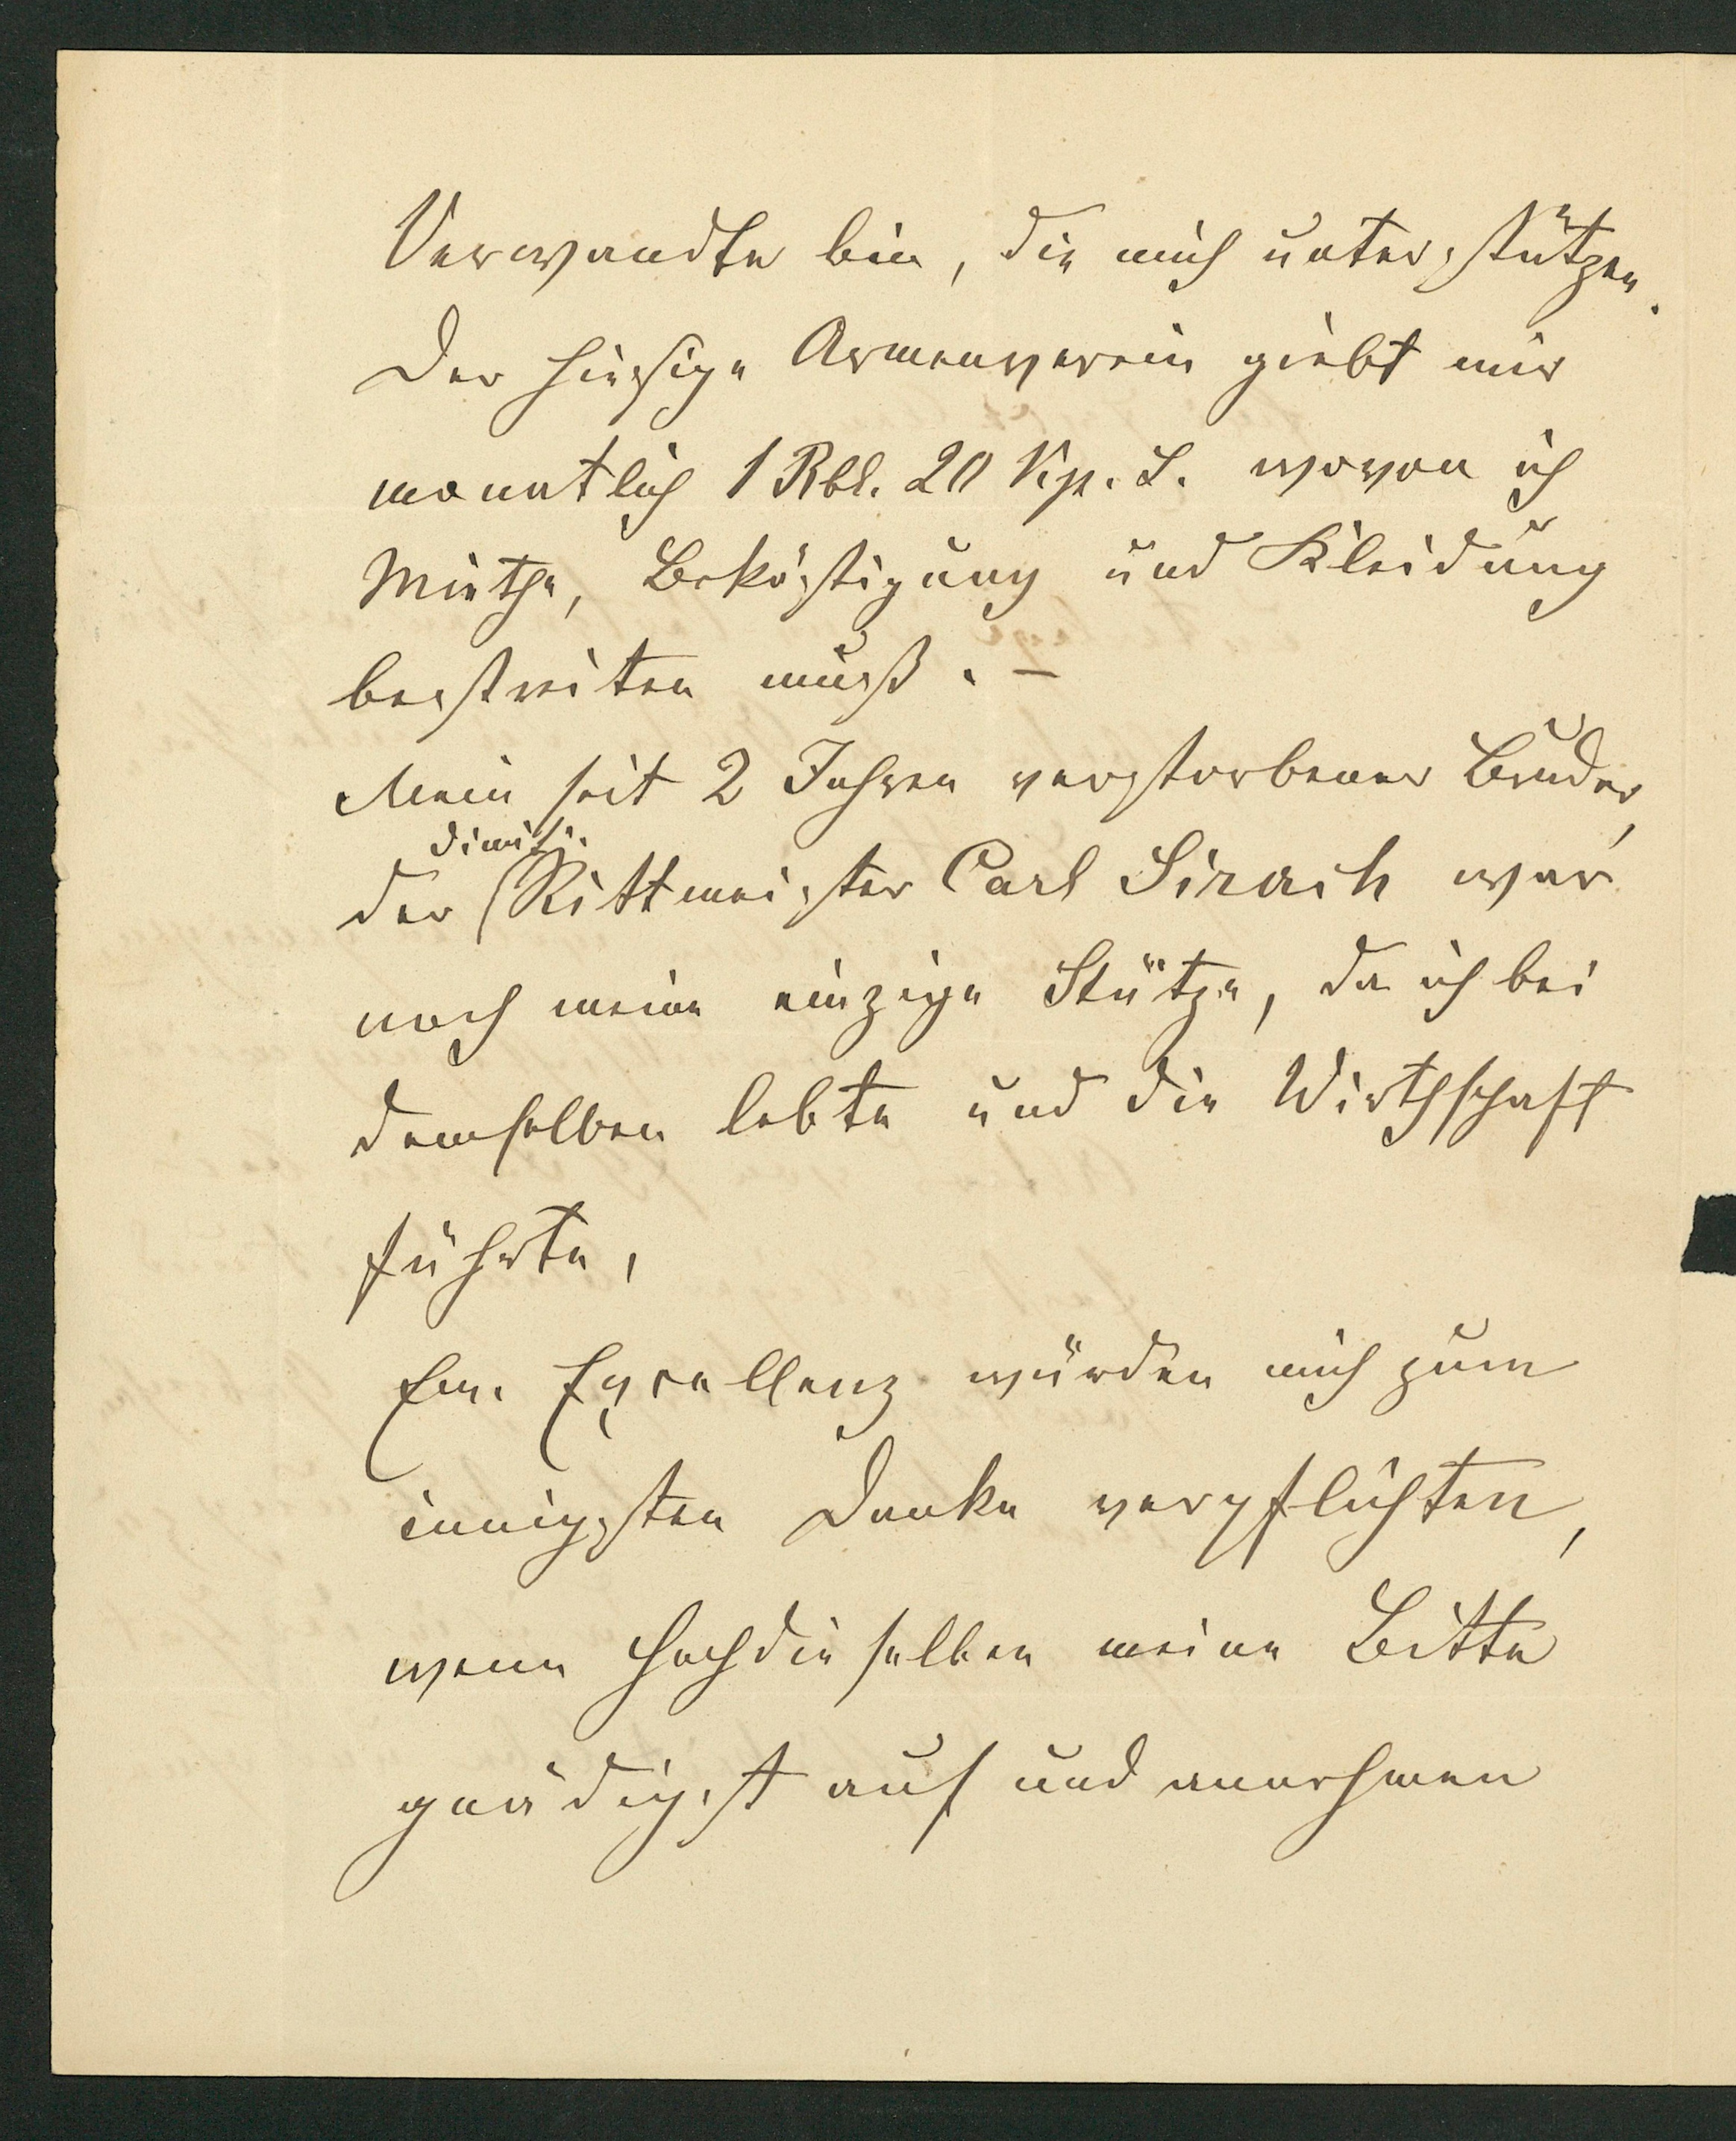 Verwandte bin, die mich unterstützen.
Der hiesige Armenverein giebt mir
monatlich 1 Rbl. 20 Kp. S. wovon ich
Miethe, Beköstigung und Kleidung
bestreiten muß. –
Mein seit 2 Jahren verstorbener Bruder,
dimitt.
der Rittmeister Carl Sirach war
noch meine einzige Stütze, da ich bei
demselben lebte und die Wirthschaft
führte,
Ew. Excellenz würden mich zum
innigsten Danke verpflichten,
wenn Hochdieselben meine Bitte
gnädigst auf und annehmen